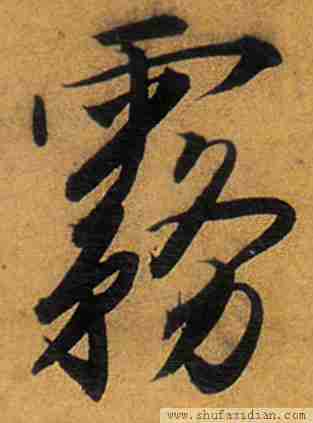 霧
www.shufazidian.com